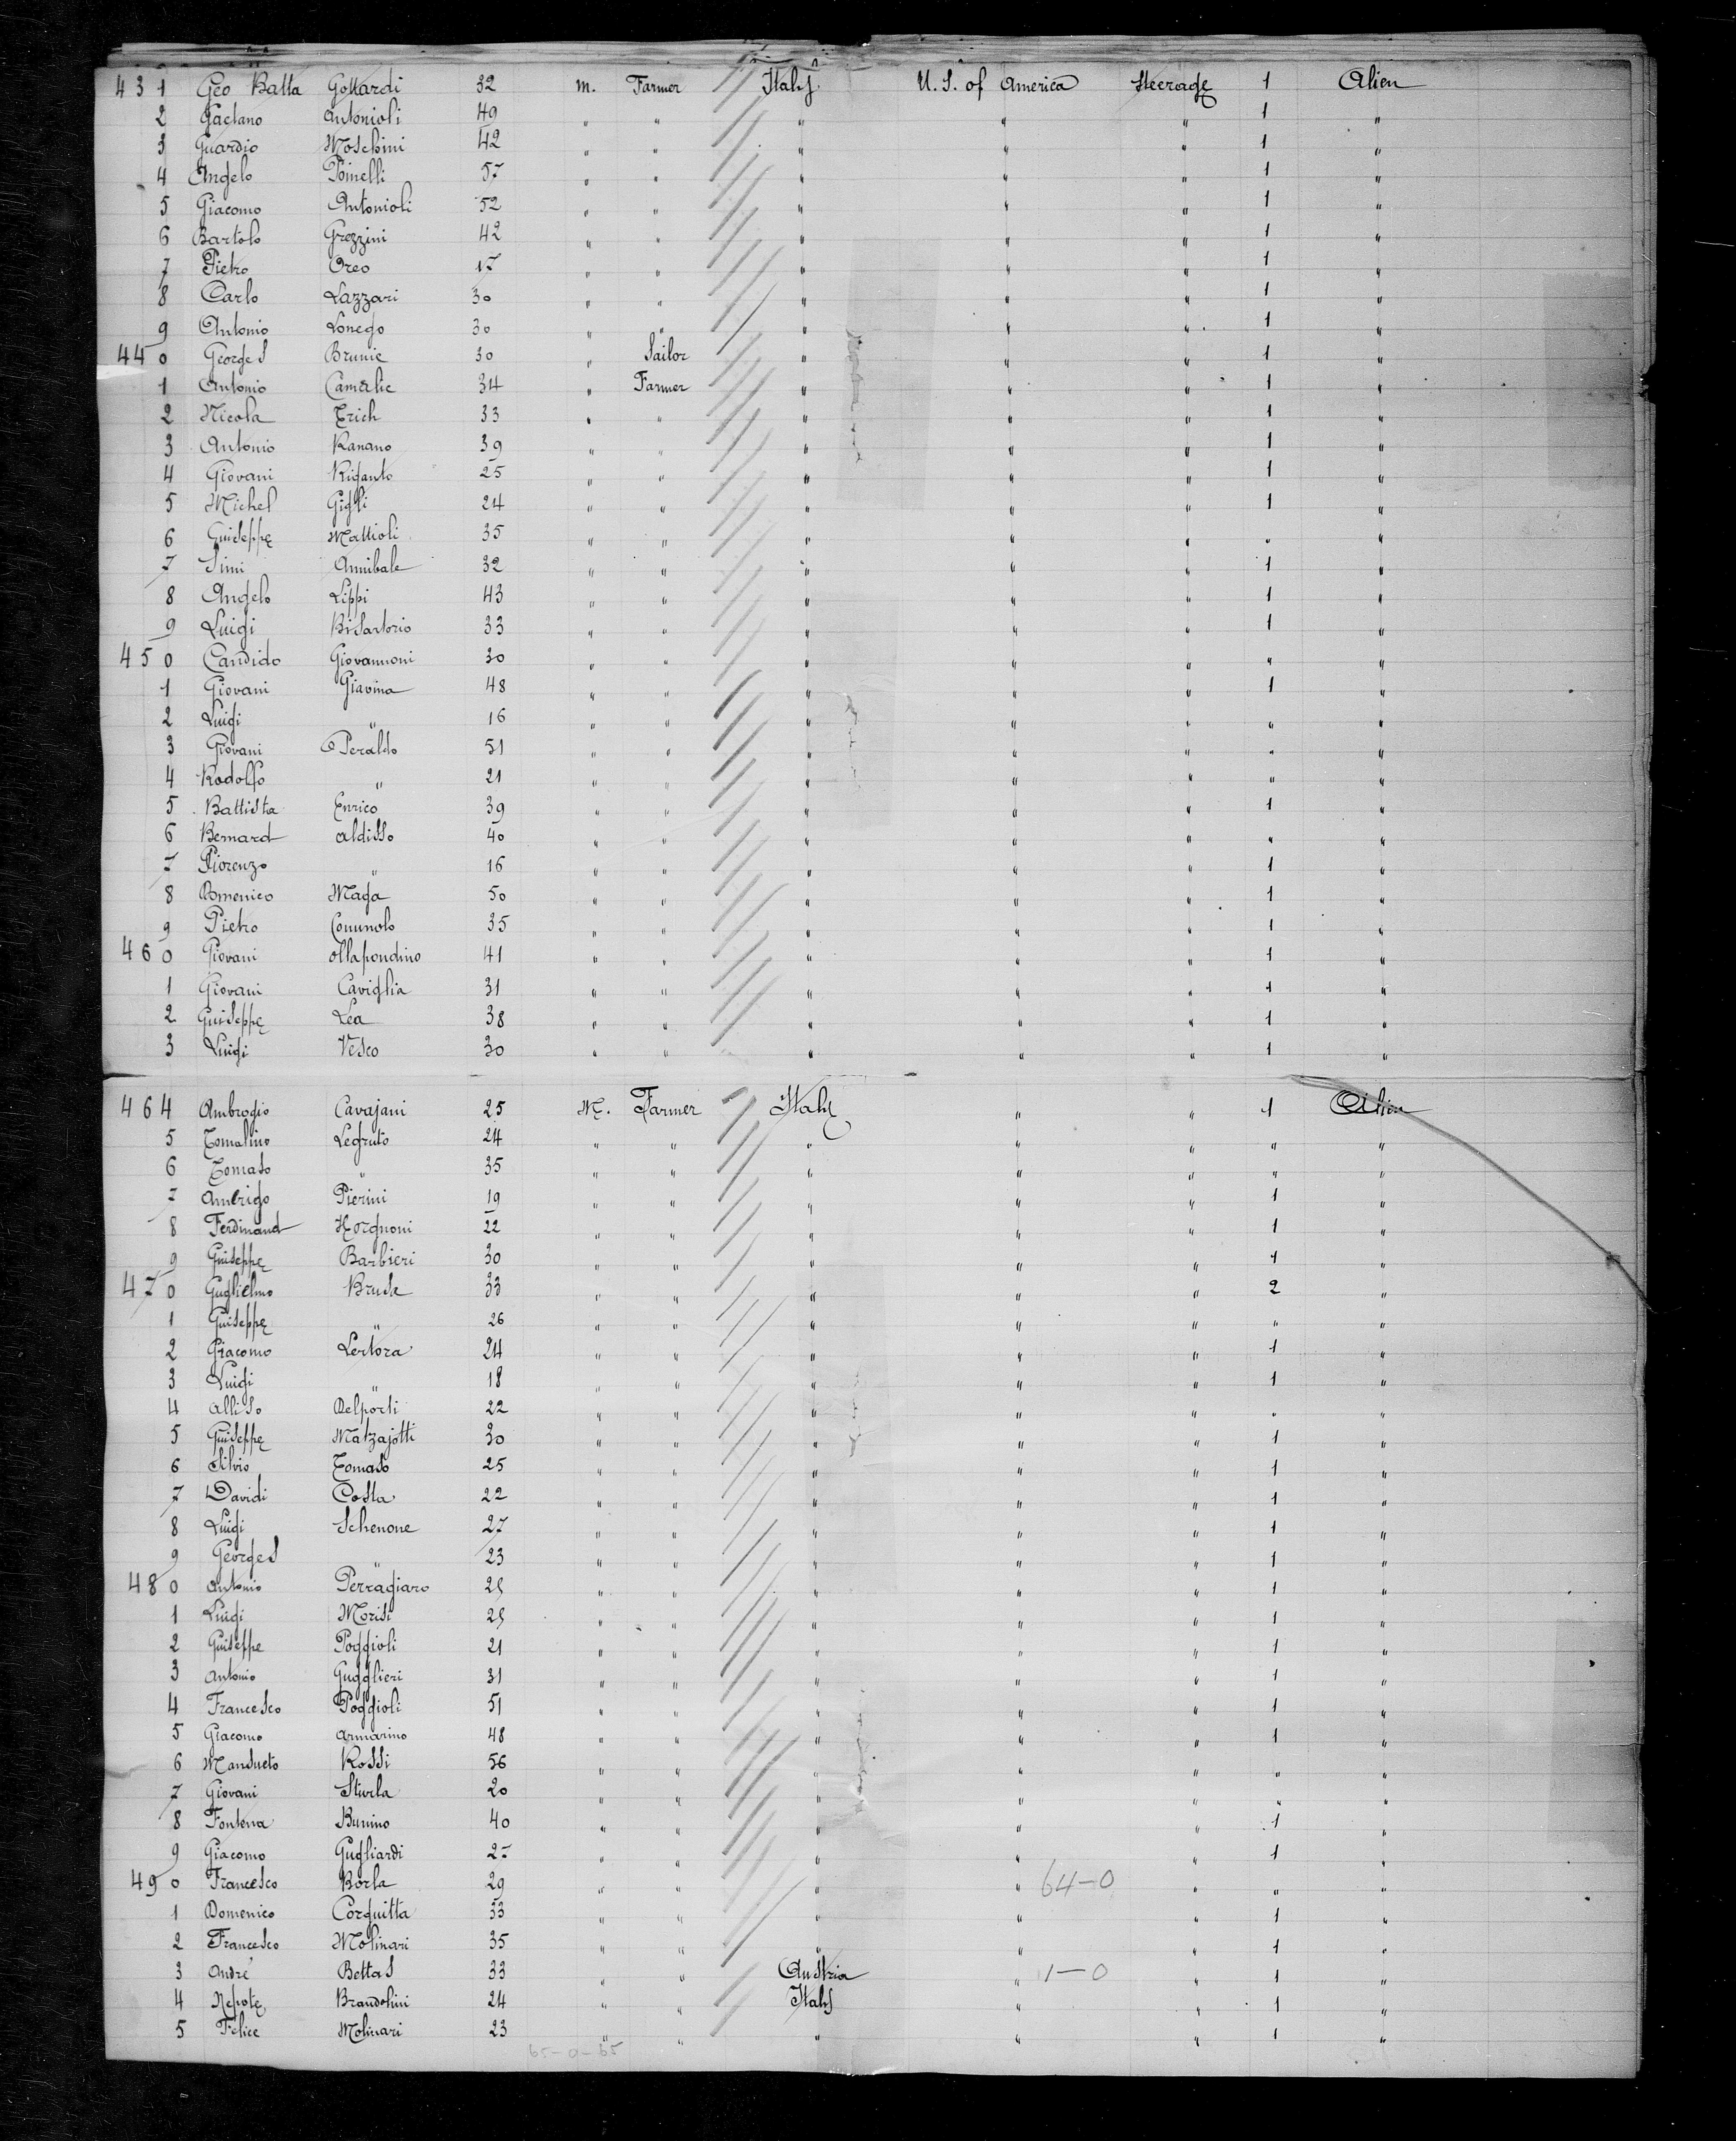 431 Geo Batta Gottardi 32 m. Farmer Italy U.S. of America Steerage 1 Alien
2 Gaetano Antonioli 49 " " " " " 1 "
3 Guardio Moschini 42 " " " " " 1 "
4 Angelo Poinelli 57 " " " " " 1 "
5 Giacomo Antonioli 52 " " " " " 1 "
6 Bartolo Grezzini 42 " " " " " 1 "
7 Pietro Oreo 17 " " " " " 1 "
8 Carlo Lazzari 30 " " " " " 1 "
9 Antonio Lonego 30 " " " " " 1 "
440 Georges Brunie 30 " Sailor " " " 1 "
1 Antonio Camerlie 34 " Farmer " " " 1 "
2 Nicola Erich 33 " " " " " 1 "
3 Antonio Ranano 39 " " " " " 1 "
4 Giovani Riganto 25 " " " " " 1 "
5 Michel Gigli 24 " " " " " 1 "
6 Guiseppe Mattioli 35 " " " " " " "
7 Simi Annibale 32 " " " " " 1 "
8 Angelo Lippi 43 " " " " " 1 "
9 Luigi Bisartorio 33 " " " " " 1 "
450 Candido Giovannoni 30 " " " " " " "
1 Giovani Giavina 48 " " " " " 1 "
2 Luigi " 16 " " " " " " "
3 Giovani Peraldo 51 " " " " " " "
4 Rodolfo " 21 " " " " " " "
5 Battista Enrico 39 " " " " " 1 "
6 Bernard Aldisso 40 " " " " " " "
7 Fiorenzo " 16 " " " " " 1 "
8 Domenico Maga 50 " " " " " 1 "
9 Pietro Comunolo 35 " " " " " 1 "
460 Giovani Ollapondino 41 " " " " " 1 "
1 Giovani Caviglia 31 " " " " " 1 "
2 Guiseppe Lea 38 " " " " " 1 "
3 Luigi Vesco 30 " " " " " 1 "
464 Ambrogio Cavajani 25 M. Farmer Italy " " 1 Alien
5 Tomalino Legruto 24 " " " " " " "
6 Tomaso " 35 " " " " " " "
7 Amerigo Pierini 19 " " " " " 1 "
8 Ferdinand Horgnoni 22 " " " " " 1 "
9 Guiseppe Barbieri 30 " " " " " 1 "
470 Guglielmo Bruse 33 " " " " " 2 "
1 Guiseppe " 26 " " " " " " "
2 Giacomo Lertora 24 " " " " " 1 "
3 Luigi " 18 " " " " " 1 "
4 Alliso Delporti 22 " " " " " " "
5 Guiseppe Matzajotti 30 " " " " " 1 "
6 Silvio Tomaso 25 " " " " " 1 "
7 Davidi Costa 22 " " " " " 1 "
8 Luigi Schenone 27 " " " " " 1 "
9 Georges " 23 " " " " " 1 "
480 Antonio Perragiaro 25 " " " " " 1 "
1 Luigi Morisi 25 " " " " " 1 "
2 Guiseppe Poggioli 21 " " " " " 1 "
3 Antonio Gugglieri 31 " " " " " 1 "
4 Francesco Poggioli 51 " " " " " 1 "
5 Giacomo Armarino 48 " " " " " 1 "
6 Mansueto Rossi 56 " " " " " " "
7 Giovani Sturla 20 " " " " " " "
8 Fontena Bunino 40 " " " " " 1 "
9 Giacomo Gugliardi 27 " " " " " 1 "
490 Francesco Borla 29 " " " " 64-0 " " "
1 Domenico Corquitta 33 " " " " " 1 "
2 Francesco Molinari 35 " " " " " 1 "
3 André Bettas 33 " " Austria " 1-0 " 1 "
4 Nepote Brandolini 24 " " Italy " " 1 "
5 Felice Molinari 23 " " " " " 1 "
65-0-65